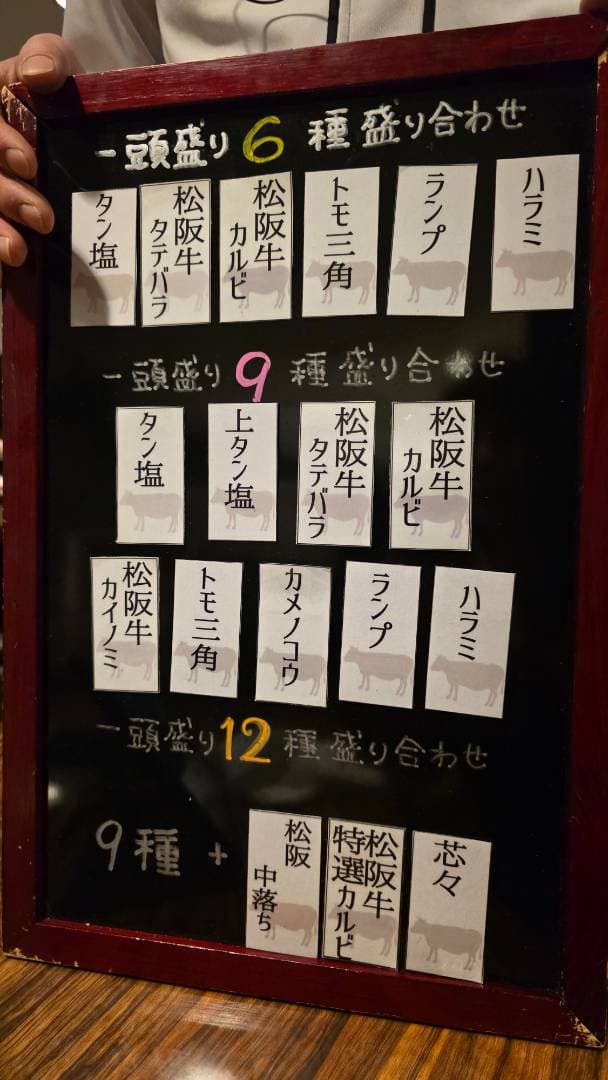 一頭盛り 6 種盛り合わせ
タン塩
松阪牛
タテバラ
松阪牛
カルビ
トモ三角
ランプ
ハラミ
一頭盛り 9 種盛り合わせ
タン塩
上タン塩
松阪牛
タテバラ
松阪牛
カルビ
松阪牛
カイノミ
トモ三角
カメノコウ
ランプ
ハラミ
一頭盛り 12 種盛り合わせ
9種 +
松阪
中落ち
松阪牛
特選カルビ
芯々